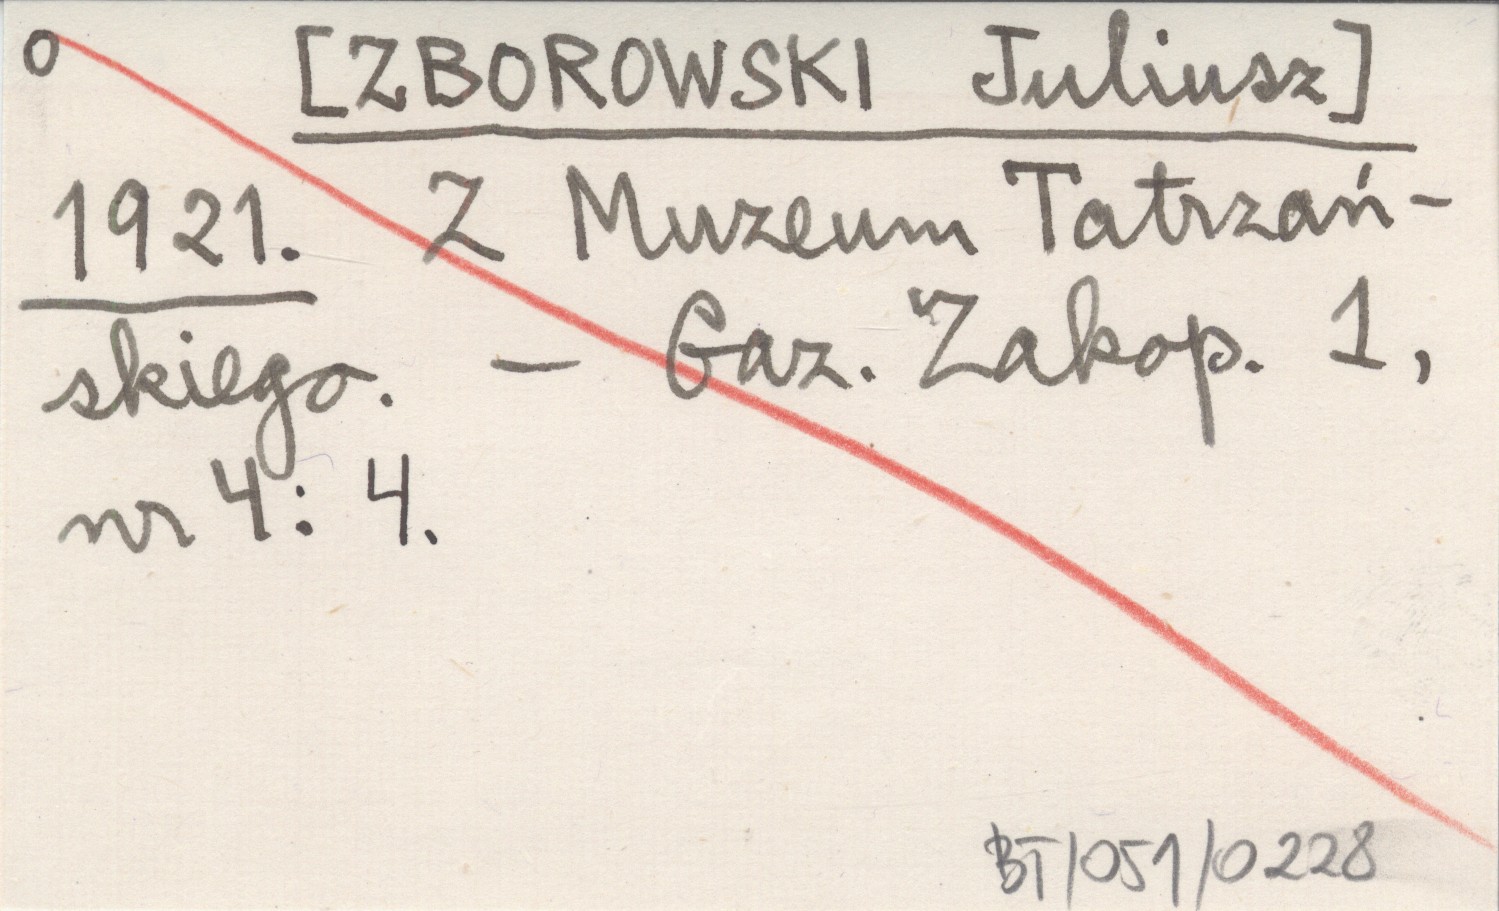 o [ZBOROWSKI Juliusz]
1921. Z Muzeum Tatrzań-
skiego. — Gaz. Zakop. 1,
nr 4: 4.
BT/051/0228